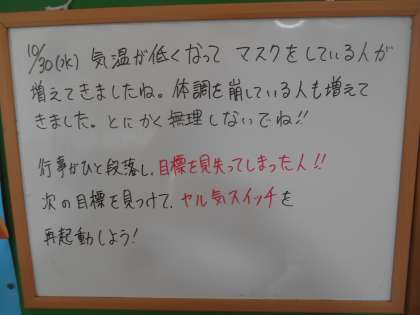 10/30(水) 気温が低くなって マスクをしている人が
増えてきましたね。体調を崩している人も増えて
きました。とにかく無理しないでね!!
行事がひと段落し、目標を見失ってしまった人!!
次の目標を見つけて、ヤル気スイッチを
再起動しよう!